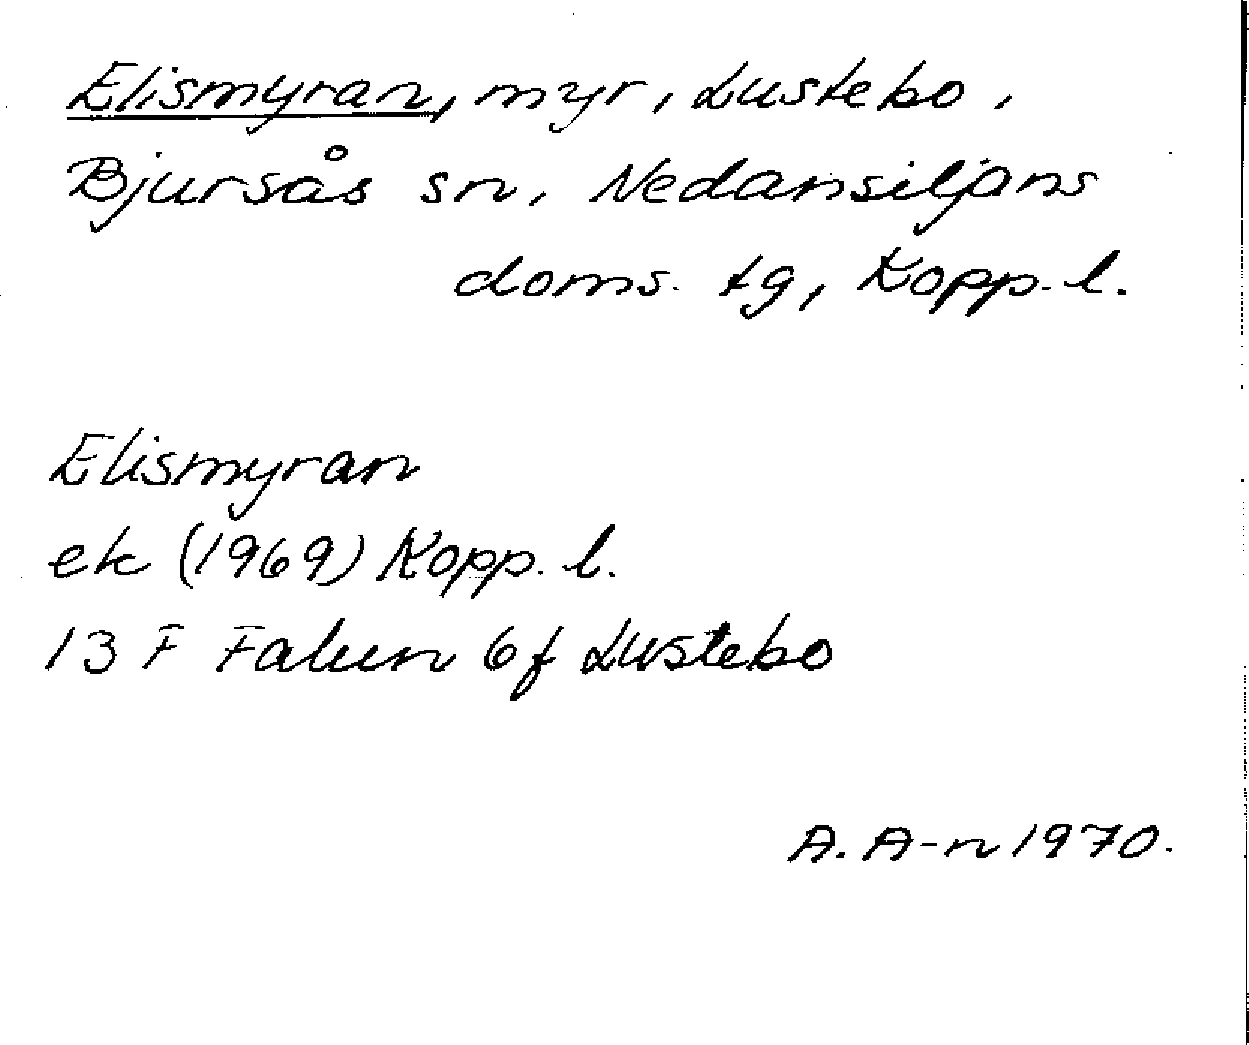 Elismyran, myr, Lustebo,
Bjursås sn, Nedansiljans
doms. tg, Kopp. l.
Elismyran
ek (1969) Kopp. l.
13 F Falun 6f Lustebo
A. A-n 1970.